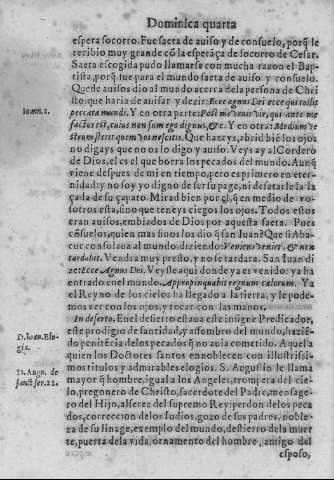 Dominica quarta
espera socorro. Fue saeta de auiso y de consuelo, porq̃ le
recibio muy grande cõ la esperãça de socurro de Cesar.
Saeta escogida pudo llamarse con mucha razon el Bap-
tista, porq̃ para el mundo saeta de auiso y consuelo.
Que de auisos dio al mundo acerca dela persona de Chri
sto: que haria de auisar y dezir: Ecce agnus Dei ecce qui tollit
Ioann. 1.
peccata mundi. Y en otra parte: Post me venit vir, qui ante me
factus est, cuius non sum ego dignus, &c. Y en otra: Medium ve
strum stetit quem vos nescitis. Que hazeys, abrid biẽ los ojos
no digays que no os lo digo y auiso. Veys ay al Cordero
de Dios, el es el que borra los pecados del mundo. Aunq̃
viene despues de mi en tiempo, pero es primero en eter-
nidad: y no soy yo digno de ser su page, ni desatarle la la
çada de su çapato. Mirad bien por el, q̃ en medio de vo-
sotros esta, sino que teneys ciegos los ojos. Todos estos
eran auisos, embiados de Dios por aquesta saeta. Pues
cõsuelos, quien mas finos los dio q̃ san Iuan? Que si Aba-
cuc consolaua al mundo, diziendo: Veniens veniet, & non
tardabit. Vendra muy presto, y no se tardara. San Iuan di
ze: Ecce Agnus Dei. Veysle aqui donde ya es venido: ya ha
entrado en el mundo. Appropinquabit regnum cælorum. Ya
el Reyno de los cielos ha llegado a la tierra, y le pode-
mos ver con los ojos, y tocar con las manos.
In deserto. En el desierto estaua este insigne Predicador,
este prodigio de santidad, y assombro del mundo, haziẽ-
D. Ioan. Elo-
gia.
do penitẽcia delos pecados q̃ no auia cometido. Aquel a
quien los Doctores santos ennoblecen con illustrissi-
mos titulos y admirables elogios. S. Augustin le llama
D. Augu. de
sanct. ser. 21.
mayor q̃ hombre, igual a los Angeles, trompeta del cie-
lo, pregonero de Christo, sacerdote del Padre, mensage-
ro del Hijo, alferez del supremo Rey: perdon delos peca
dos, correccion delos Iudios, gozo de sus padres, noble-
za de su linage, exemplo del mundo, destierro dela muer
te, puerta dela vida, ornamento del hombre, amigo del
esposo,